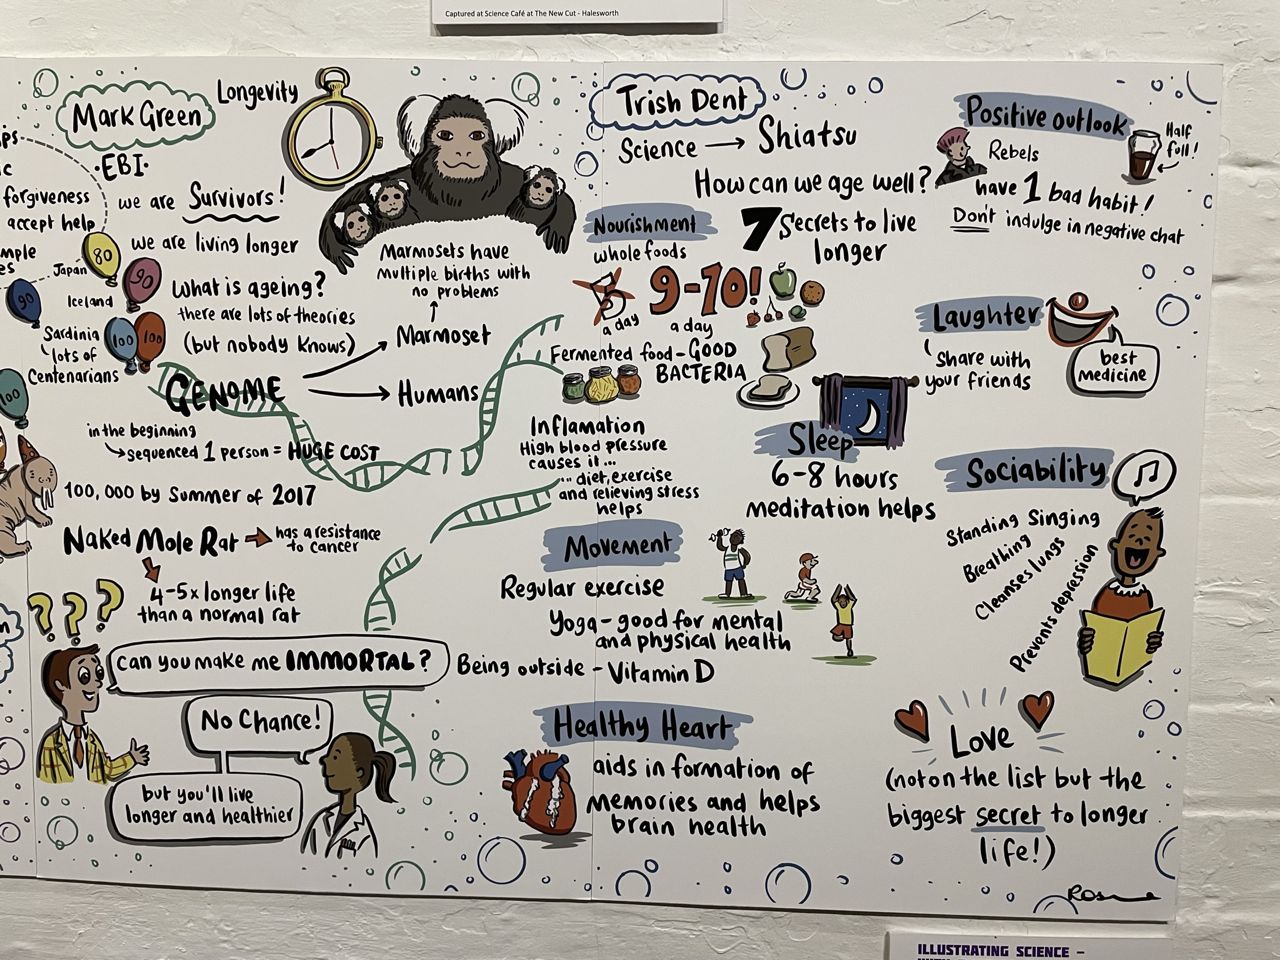 Captured at Science Café at The New Cut - Halesworth
forgiveness
accept help
Mark Green
·EBI·
Longevity
we are Survivors!
we are living longer
What is ageing?
there are lots of theories
(but nobody knows)
80
Japan
90
90
Iceland
Sardinia
lots of
Centenarians
100
100
100
Marmosets have
multiple births with
no problems
Marmoset
GENOME
Humans
in the beginning
sequenced 1 person = HUGE COST
100,000 by Summer of 2017
Naked Mole Rat
has a resistance
to cancer
4-5x longer life
than a normal rat
???
Can you make me IMMORTAL?
No Chance!
but you'll live
longer and healthier
Trish Dent
Science → Shiatsu
How can we age well?
7 Secrets to live
longer
Nourishment
whole foods
5
a day
9-10!
a day
Fermented food - GOOD
BACTERIA
Inflamation
High blood pressure
causes it...
... diet, exercise
and relieving stress
helps
Sleep
6-8 hours
meditation helps
Movement
Regular exercise
Yoga - good for mental
and physical health
Being outside - Vitamin D
Healthy Heart
aids in formation of
memories and helps
brain health
Positive outlook
Half
full!
Rebels
have 1 bad habit!
Don't indulge in negative chat
Laughter
Share with
your friends
best
medicine
Sociability
Standing Singing
Breathing
Cleanses lungs
Prevents depression
Love
(not on the list but the
biggest secret to longer
life!)
ILLUSTRATING SCIENCE –